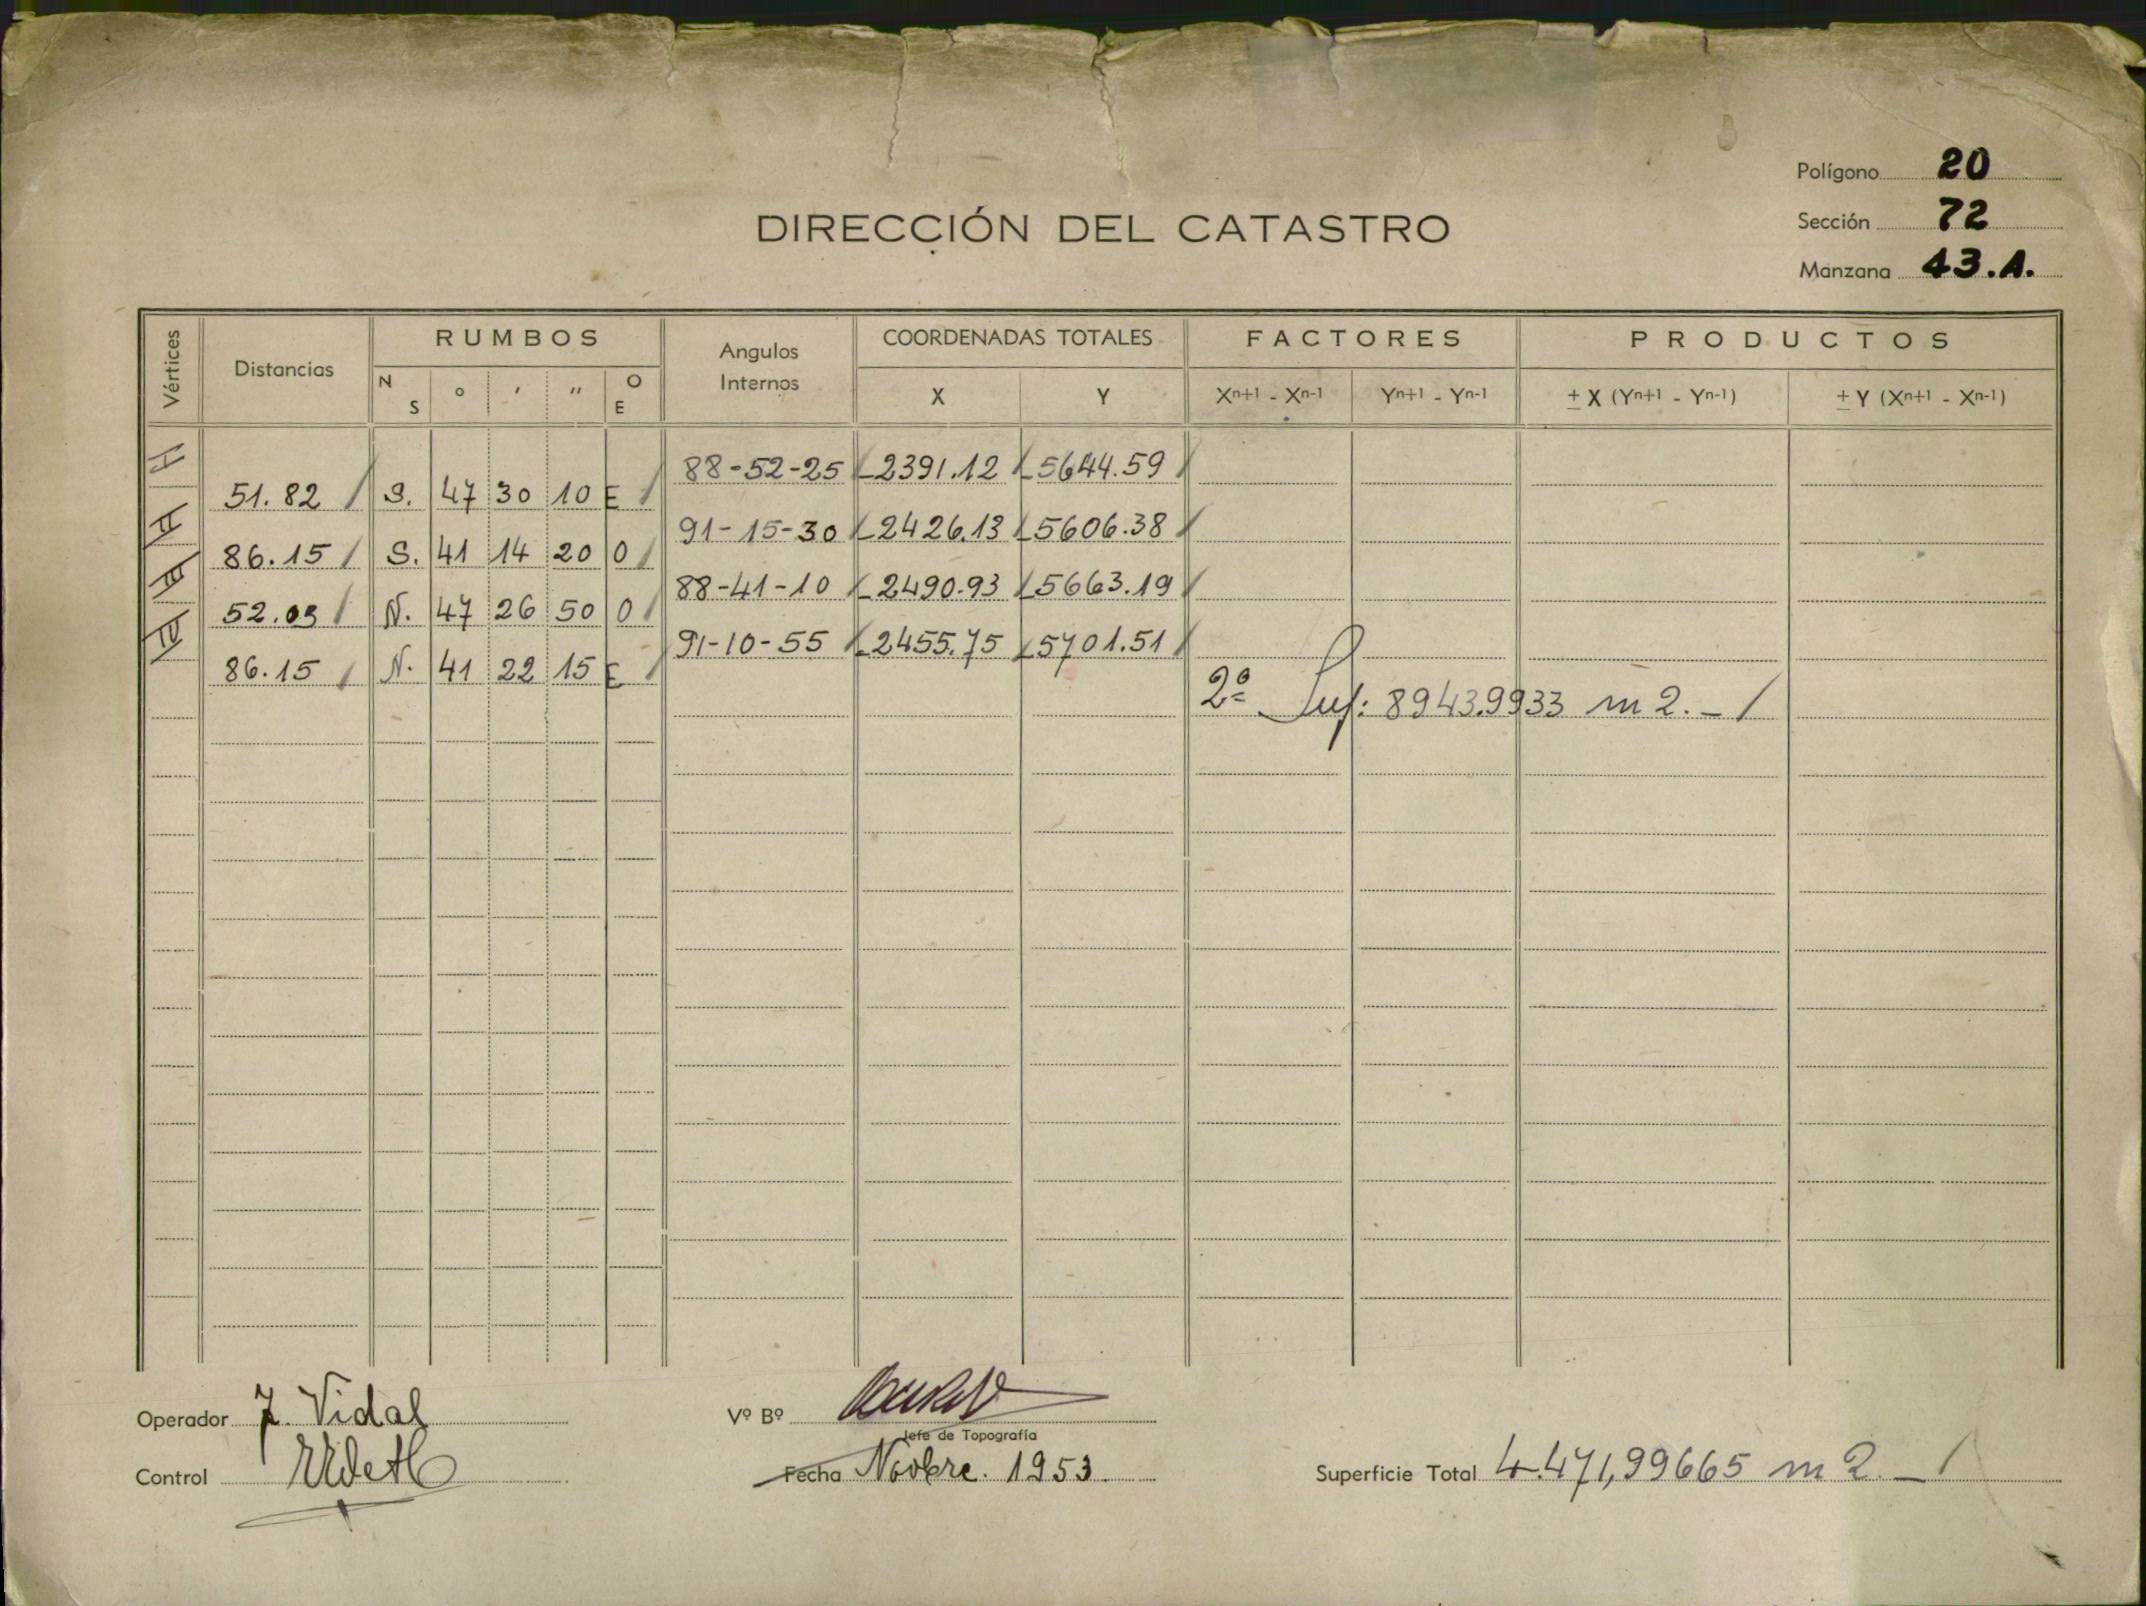 Polígono 20
DIRECCIÓN DEL CATASTRO
Sección 72
Manzana 43.A.
Vértices Distancias RUMBOS Angulos Internos COORDENADAS TOTALES FACTORES PRODUCTOS
N S ° ′ ″ O E X Y Xn+1 - Xn-1 Yn+1 - Yn-1 ± X (Yn+1 - Yn-1) ± Y (Xn+1 - Xn-1)
I 88-52-25 -2391.12 -5644.59
51.82 S. 47 30 10 E
II 91-15-30 -2426.13 -5606.38
86.15 S. 41 14 20 O
III 88-41-10 -2490.93 -5663.19
52.03 N. 47 26 50 O
IV 91-10-55 -2455.75 -5701.51
86.15 N. 41 22 15 E
2ª Sup: 8943.9933 m2.-
Operador J. Vidal
Vº Bº
Jefe de Topografía
Control
Fecha Novbre. 1953.
Superficie Total 4.471,99665 m2.-